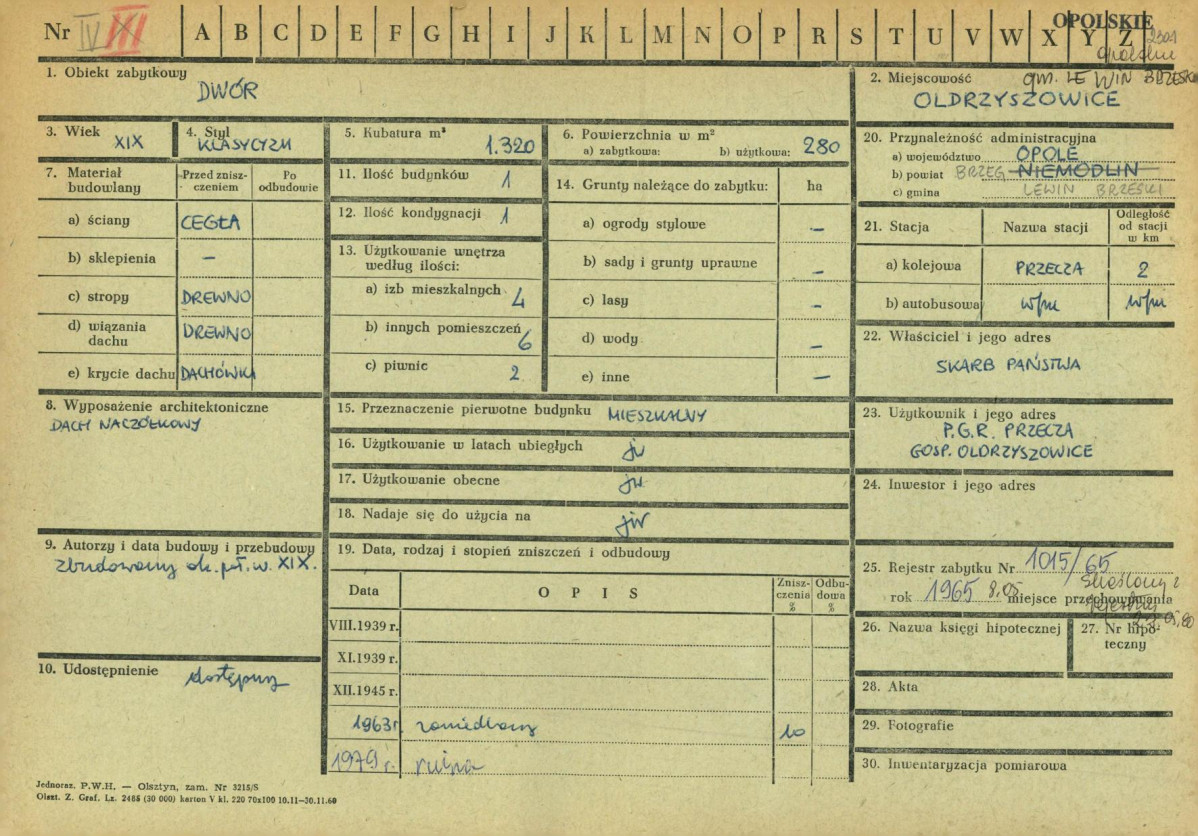 Nr IV III A B C D E F G H I J K L M N O P R S T U V W X Y Z
OPOLSKIE
opolskie
1. Obiekt zabytkowy
DWÓR
2. Miejscowość gm. LEWIN BRZESKI
OLDRZYSZOWICE
3. Wiek
XIX
4. Styl
KLASYCYZM
5. Kubatura m³
1.320
6. Powierzchnia w m²
a) zabytkowa: b) użytkowa: 280
20. Przynależność administracyjna
a) województwo OPOLE
b) powiat BRZEG NIEMODLIN
c) gmina LEWIN BRZESKI
7. Materiał budowlany
Przed zniszczeniem
Po odbudowie
a) ściany CEGŁA
b) sklepienia –
c) stropy DREWNO
d) wiązania dachu DREWNO
e) krycie dachu DACHÓWKA
11. Ilość budynków 1
12. Ilość kondygnacji 1
13. Użytkowanie wnętrza według ilości:
a) izb mieszkalnych 4
b) innych pomieszczeń 6
c) piwnic 2
14. Grunty należące do zabytku: ha
a) ogrody stylowe –
b) sady i grunty uprawne –
c) lasy –
d) wody –
e) inne –
21. Stacja Nazwa stacji Odległość od stacji w km
a) kolejowa PRZECZA 2
b) autobusowa w/m w/m
22. Właściciel i jego adres
SKARB PAŃSTWA
8. Wyposażenie architektoniczne
DACH NACZÓŁKOWY
15. Przeznaczenie pierwotne budynku MIESZKALNY
16. Użytkowanie w latach ubiegłych jw
17. Użytkowanie obecne jw.
18. Nadaje się do użycia na jw
23. Użytkownik i jego adres
P.G.R. PRZECZA
GOSP. OLDRZYSZOWICE
24. Inwestor i jego adres
9. Autorzy i data budowy i przebudowy
zbudowany ok. poł. w. XIX.
19. Data, rodzaj i stopień zniszczeń i odbudowy
Data O P I S Zniszczenia % Odbudowa %
VIII.1939 r.
XI.1939 r.
XII.1945 r.
1963 r. zaniedbany 10
1979 r. ruina
25. Rejestr zabytku Nr 1015/65
rok 1965 8.05 miejsce przechowywania
Skreślony z
rejestru
26. Nazwa księgi hipotecznej
27. Nr hipoteczny
10. Udostępnienie dostępny
28. Akta
29. Fotografie
30. Inwentaryzacja pomiarowa
Jednoraz. P.W.H. — Olsztyn, zam. Nr 3215/S
Olszt. Z. Graf. Lz. 2485 (30 000) karton V kl. 220 70x100 10.11—30.11.60